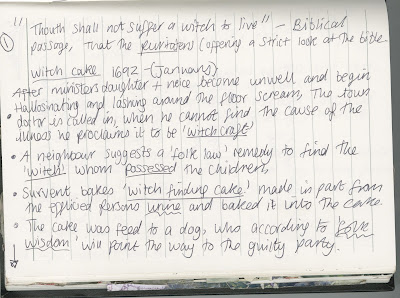 "Thouth shall not suffer a witch to live" - Biblical
① passage, that the puritatens (offering a strict look at the bible
witch cake 1692 - (January)
After ministers daughter + neice become unwell and begin
Hallosinating and lashing around the floor scream, the town
• doctor is called in, when he cannot find the cause of the
illness he proclaims it to be 'witchcraft'
• A neighbour suggests a 'folk law' remedy to find the
'witch' whom possessed the children,
• Survent bakes 'witch finding cake' made in part from
the efflived persons urine and baked it into the cake.
• The cake was feed to a dog, who according to folk
wisdom 'will point the way to the guilty party.